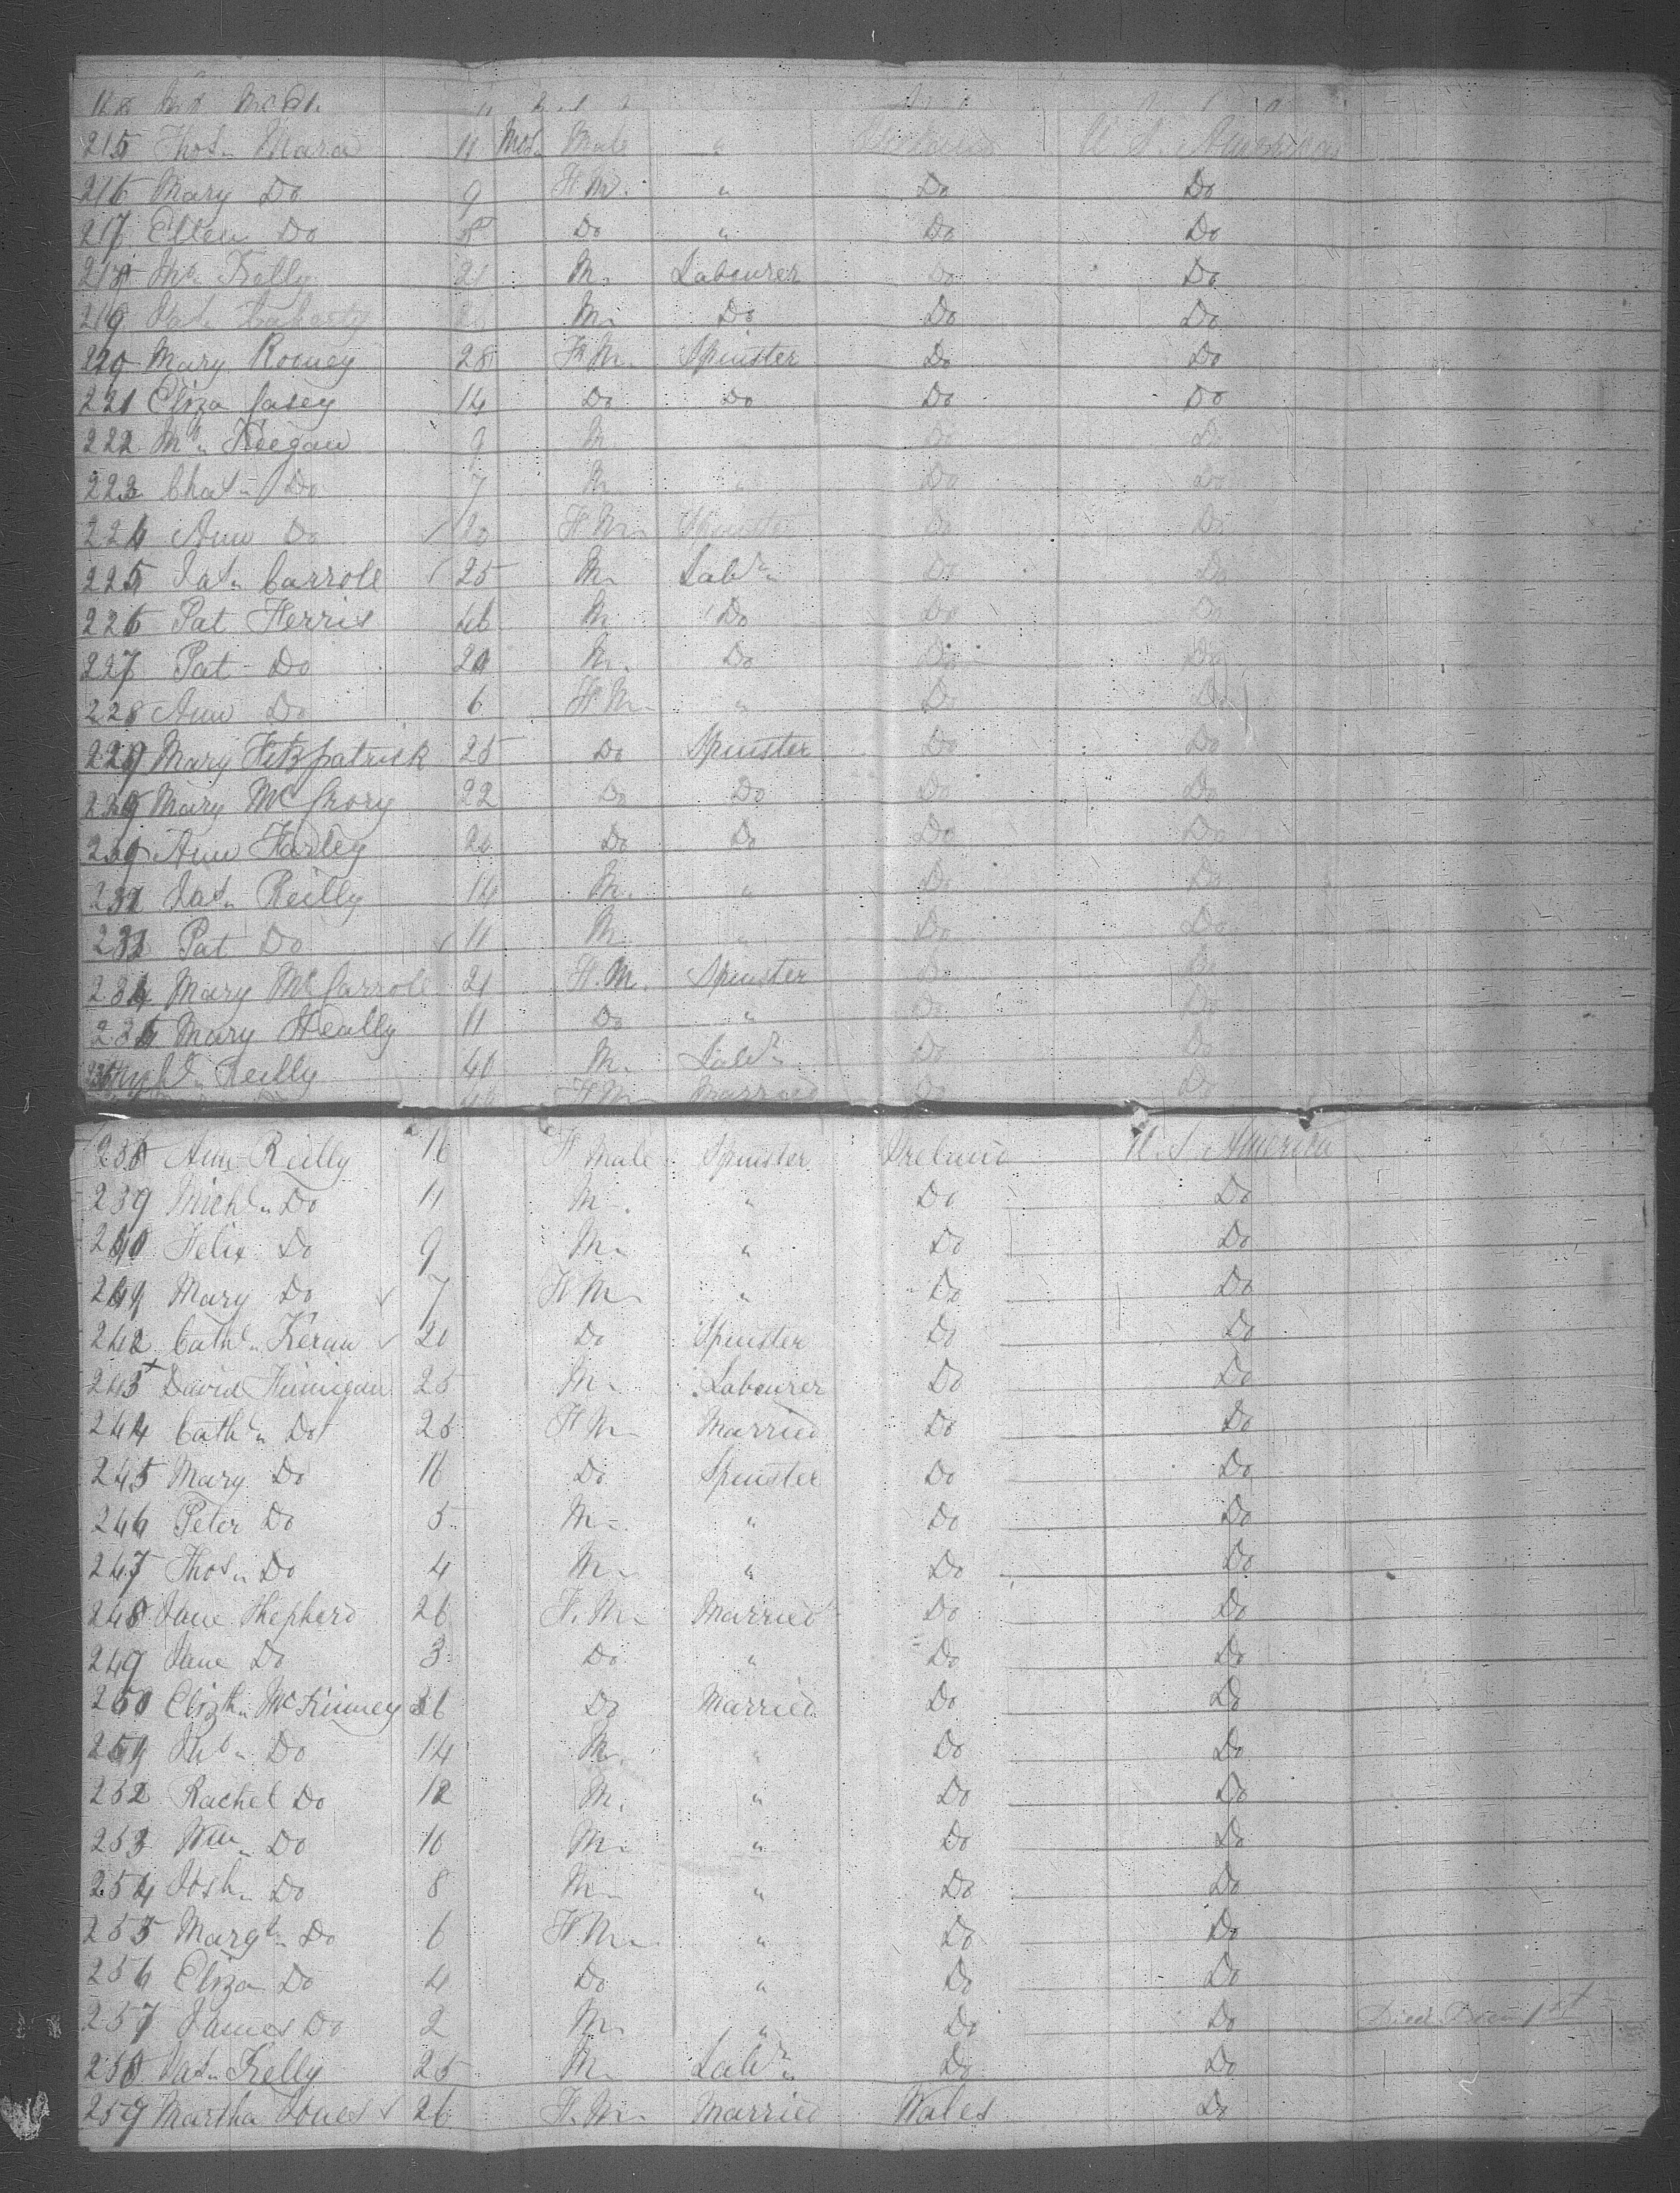 215 Thos. Mara 11 Mos. Male " Ireland U. S. America
216 Mary Do 9 F M. " Do Do
217 Ellen Do 5 Do " Do Do
218 Kelly 21 M. Labourer Do Do
219 Jas. M. Do Do Do
220 Mary Rooney 28 F. M. Spinster Do Do
221 Eliza Casey 14 Do Do Do Do
222 Keegan 9 M Do Do
223 Chas. Do 7 M " Do Do
224 Ann Do 20 F. M. Spinster Do Do
225 Jas. Carroll 25 M. Labr. Do Do
226 Pat Ferris 46 M Do Do Do
227 Pat Do M. Do Do Do
228 Ann Do 6 F. M. " Do Do
229 Mary Fitzpatrick 25 Do Spinster Do Do
Mary McCrory 22 Do Do Do Do
Ann Farley Do Do Do Do
Jas. Reilly 14 M. " Do Do
Pat Do 11 M " Do Do
234 Mary McCarroll 21 F. M. Spinster Do Do
235 Mary Heally 11 Do " Do Do
Reilly 40 M. Labr. Do Do
F M Married Do Do
238 Ann Reilly 16 F Male Spinster Ireland U. S. America
239 Michl. Do 11 M. " Do Do
240 Felix Do 9 M. " Do Do
241 Mary Do 7 F M. " Do Do
242 Cath. Keran 20 Do Spinster Do Do
243 David Finnigan 25 M. Labourer Do Do
244 Cath. Do 25 F M. Married Do Do
245 Mary Do 16 Do Spinster Do Do
246 Peter Do 5 M. " Do Do
247 Thos. Do 4 M. " Do Do
248 Jane Shepherd 26 F. M. Married Do Do
249 Jane Do 3 Do " Do Do
250 Elizth. McKinney 36 Do Married Do Do
251 Do 14 M. " Do Do
252 Rachel Do 12 M. " Do Do
253 Wm. Do 10 M. " Do Do
254 Josh. Do 8 M. " Do Do
255 Margt. Do 6 F. M. " Do Do
256 Eliza Do 4 Do " Do Do
257 James Do 2 M. " Do Do Died
258 Jas. Kelly 25 M. Labr. Do Do
259 Martha Jones 26 F. M. Married Wales Do